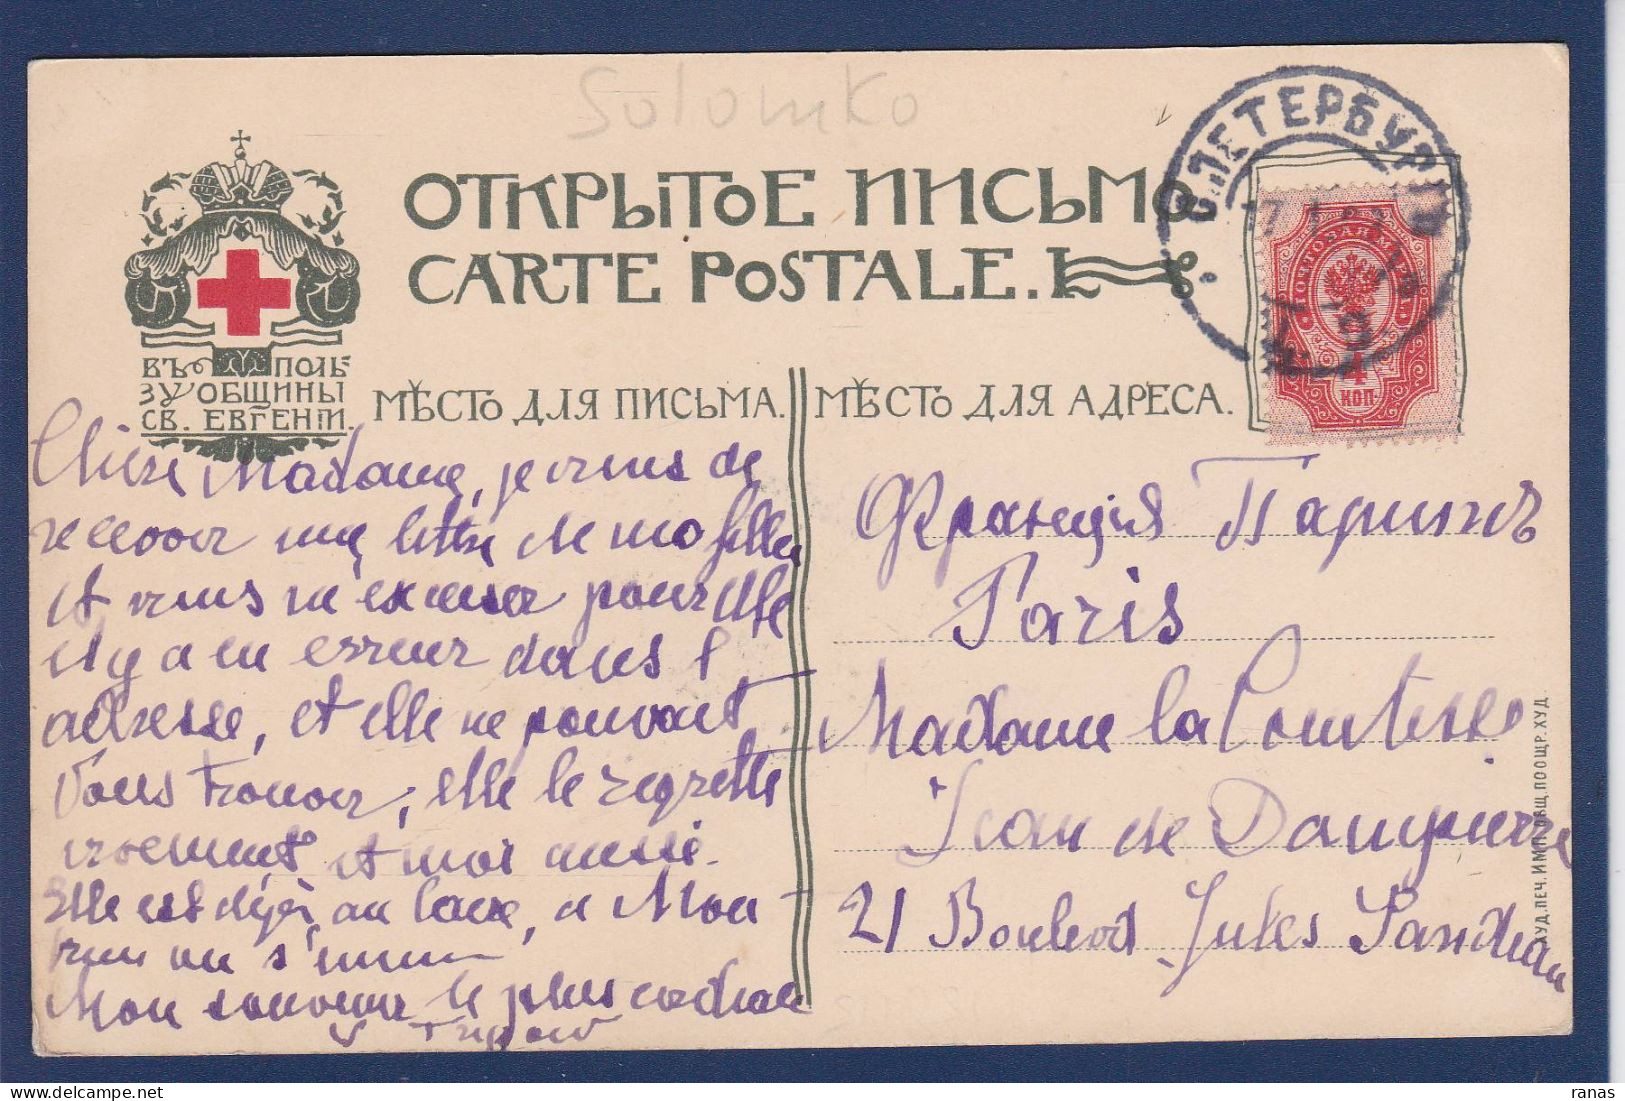 Solomko
ОТКРЫТОЕ ПИСЬМО
CARTE POSTALE.
С.ПЕТЕРБУРГЪ
ПОЧТОВАЯ МАРКА
4
КОП.
ВЪ ПОЛЬ
ЗУ ОБЩИНЫ
СВ. ЕВГЕНІИ.
МѢСТО ДЛЯ ПИСЬМА.
МѢСТО ДЛЯ АДРЕСА.
Chère Madame, je viens de
recevoir une lettre de ma fille
et viens m'excuser pour elle
il y a eu erreur dans l'
adresse, et elle ne pouvait
vous trouver, elle le regrette
vivement et moi aussi.
Elle est déjà au , a Mon
s'
Mon souvenir le plus cordial
Франція Парижъ
Paris
Madame la Comtesse
Jean de Dampierre
21 Boulevd Jules Sandeau
ХУД.ПЕЧ.ИМП.ОБЩ.ПООЩР.ХУД
ranas